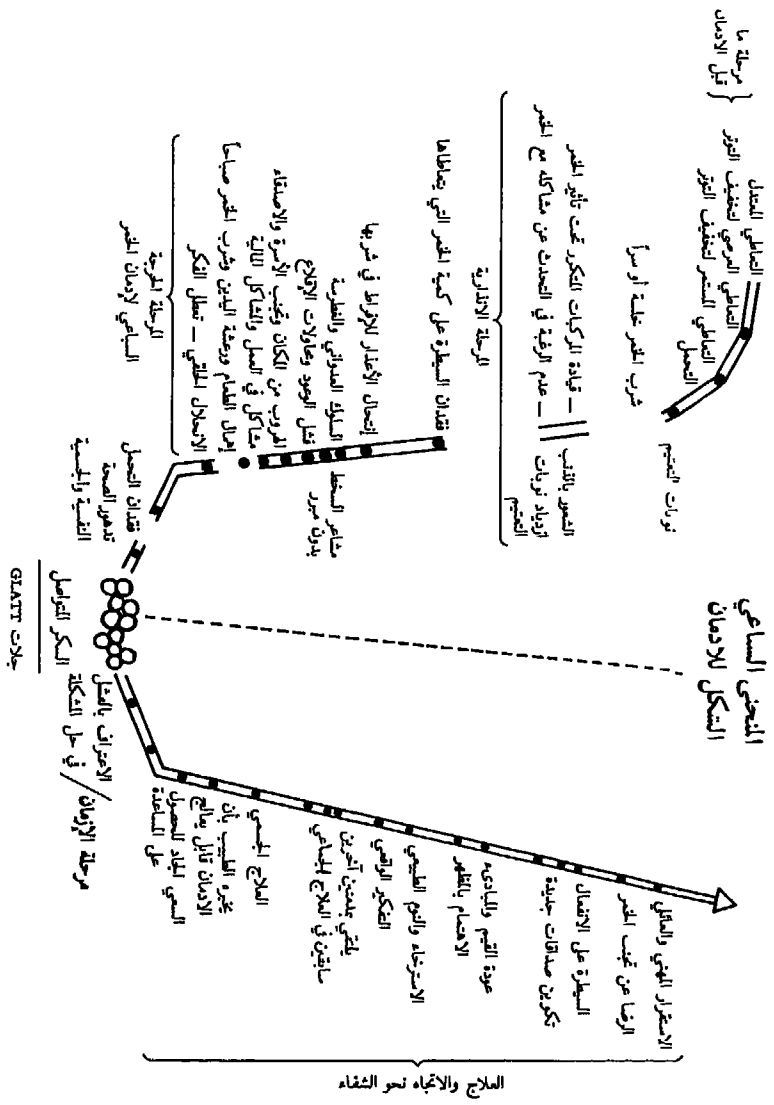 المنحنى الساعي
الشكل للادمان
مرحلة ما
قبل الادمان
التعاطي المعتدل
التعاطي العرضي لتخفيف التوتر
التعاطي المستمر لتخفيف التوتر
التحمل
شرب الخمر خلسة أو سراً
نوبات التعتيم
قيادة المركبات المتكرر تحت تأثير الخمر –
عدم الرغبة في التحدث عن مشاكله مع الخمر –
الشعور بالذنب
ازدياد نوبات
التعتيم
المرحلة الانذارية
فقدان السيطرة على كمية الخمر التي يتعاطاها
إنتحال الأعذار للإفراط في شربها
السلوك العدواني والغطرسة
فشل الوعود ومحاولات الإقلاع
الهروب من المكان وتجنب الأسرة والاصدقاء
مشاكل في العمل والمشاكل المالية
إهمال الطعام ورعشة اليدين وشرب الخمر صباحاً
الانحلال الخلقي – تعطل الفكر
مشاعر السخط
بدون مبرر
المرحلة الحرجة
السباعي لإدمان الخمر
فقدان التحمل
تدهور الصحة
النفسية والجسمية
السكر المتواصل
جلات GLATT
الاعتراف بالفشل
في حل المشكلة
مرحلة الإزمان
السعي الجاد للحصول
على المساعدة
يخبره الطبيب بأن
الادمان قابل يعالج
العلاج الجسمي
يلتقي بمدمنين آخرين
سابقين في العلاج الجماعي
التفكير الواقعي
الاسترخاء والنوم الطبيعي
الاهتمام بالمظهر
عودة القيم والمبادىء
تكوين صداقات جديدة
السيطرة على الانفعال
الرضا عن تجنب الخمر
الاستقرار المهني والعائلي
العلاج والاتجاه نحو الشفاء